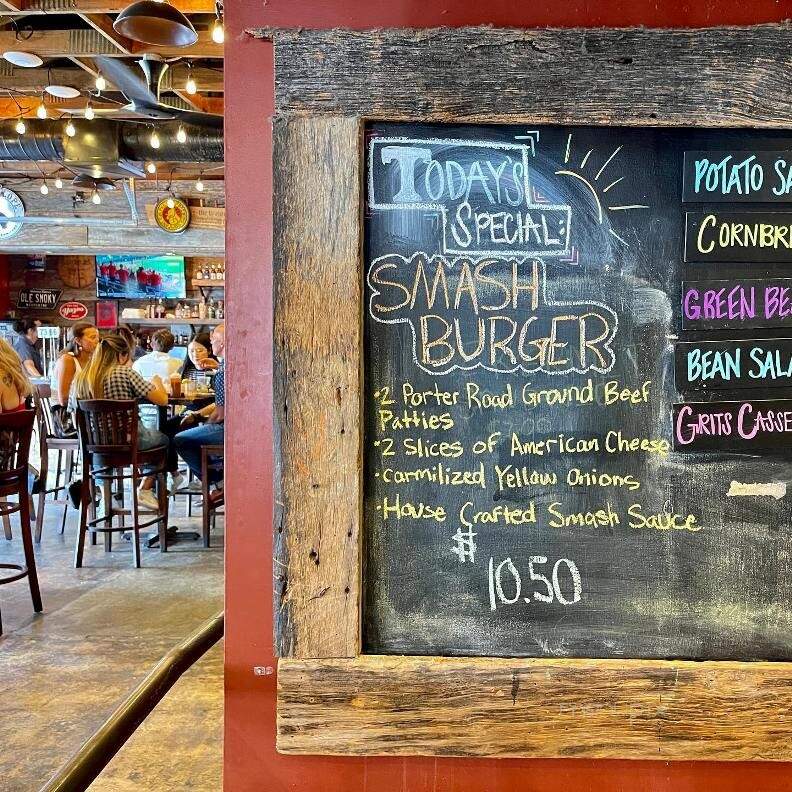 TODAY'S
SPECIAL:
SMASH
BURGER
•2 Porter Road Ground Beef
Patties
•2 Slices of American Cheese
•carmilized Yellow Onions
•House Crafted Smash Sauce
$
10.50
POTATO SA
CORNBR
GREEN BE
BEAN SALA
GRITS CASSE
OLE SMOKY